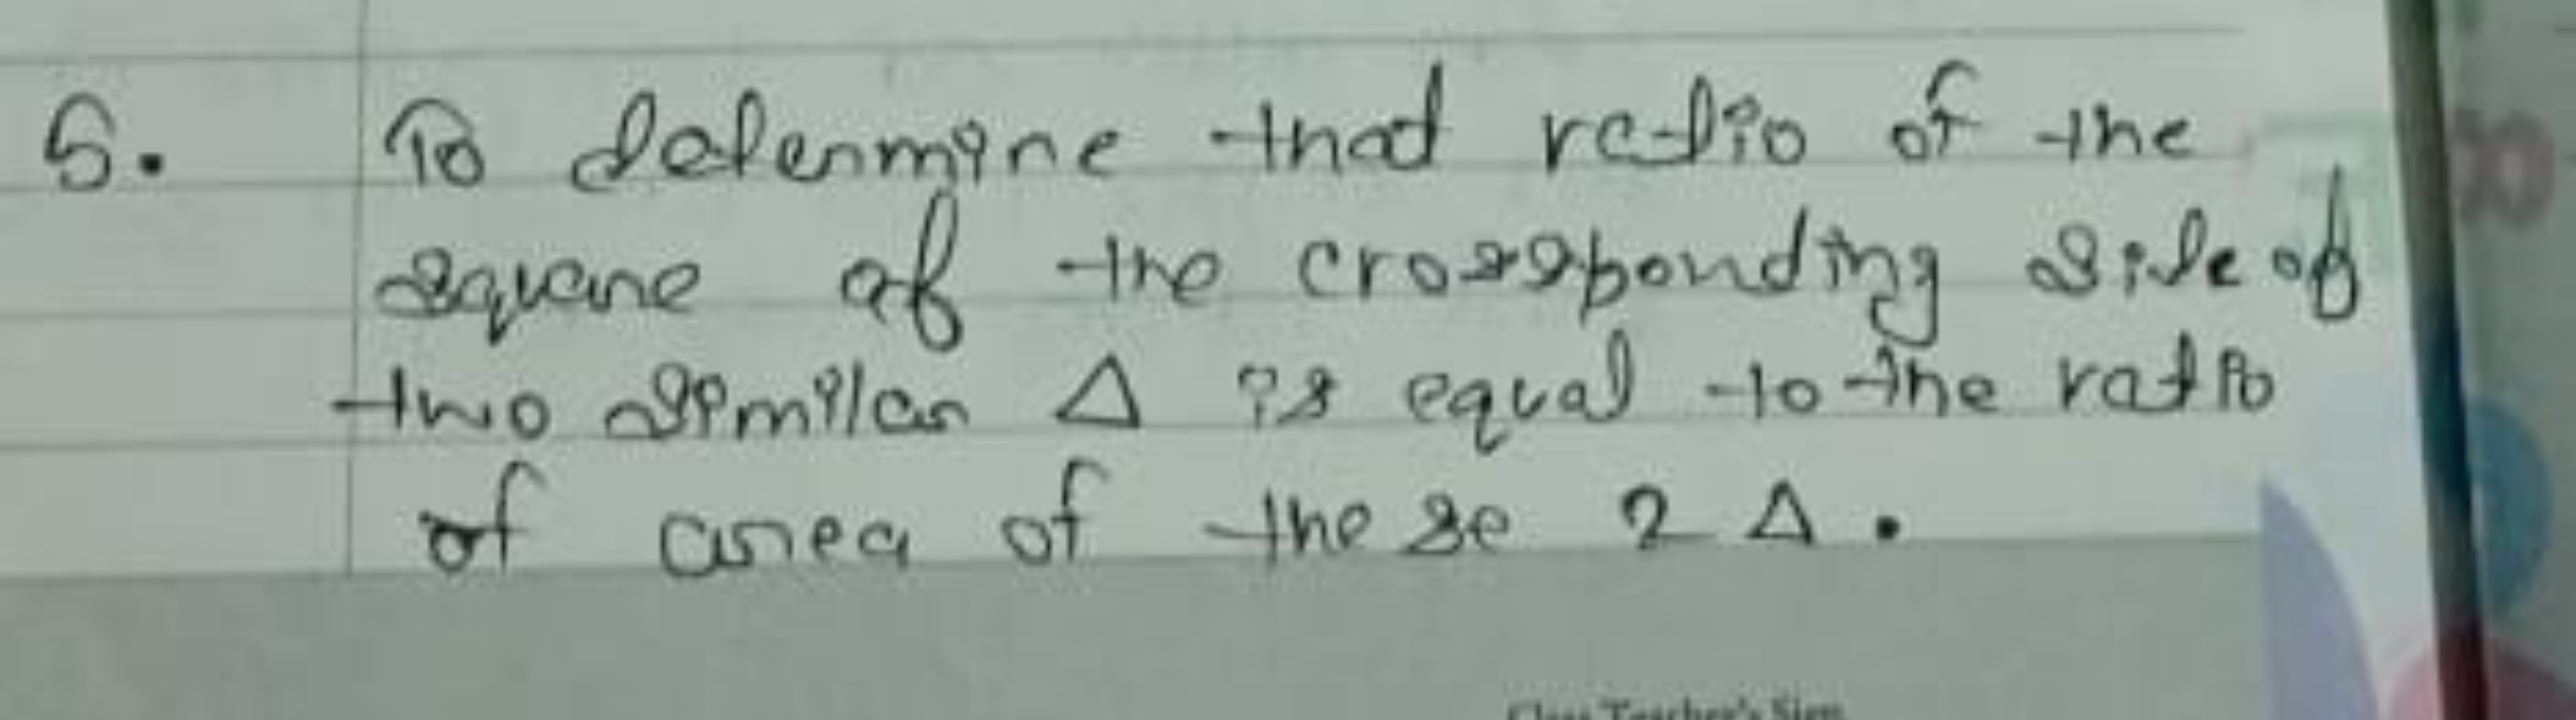 5. To determine that ratio of the
square of the crossponding side of
two similar Δ is equal to the ratio
of area of these 2 Δ.
Class Teacher's Sign